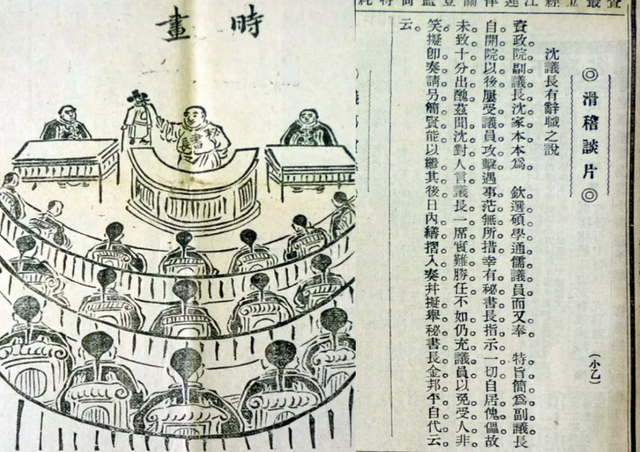 時畫
◎滑稽談片◎
(小乙)
沈議長有辭職之說
資政院副議長沈家本本爲 欽選碩學通儒議員而又奉 特旨簡爲副議長
自開院以後屢受議員攻擊遇事茫無所措幸有秘書長指示一切自居傀儡故
未致十分出醜茲聞沈對人言議長一席實難勝任不如仍充議員以免受人非
笑擬卽奏請另簡賢能以繼其後日內繕摺入奏幷擬舉秘書長金邦平自代云
云。